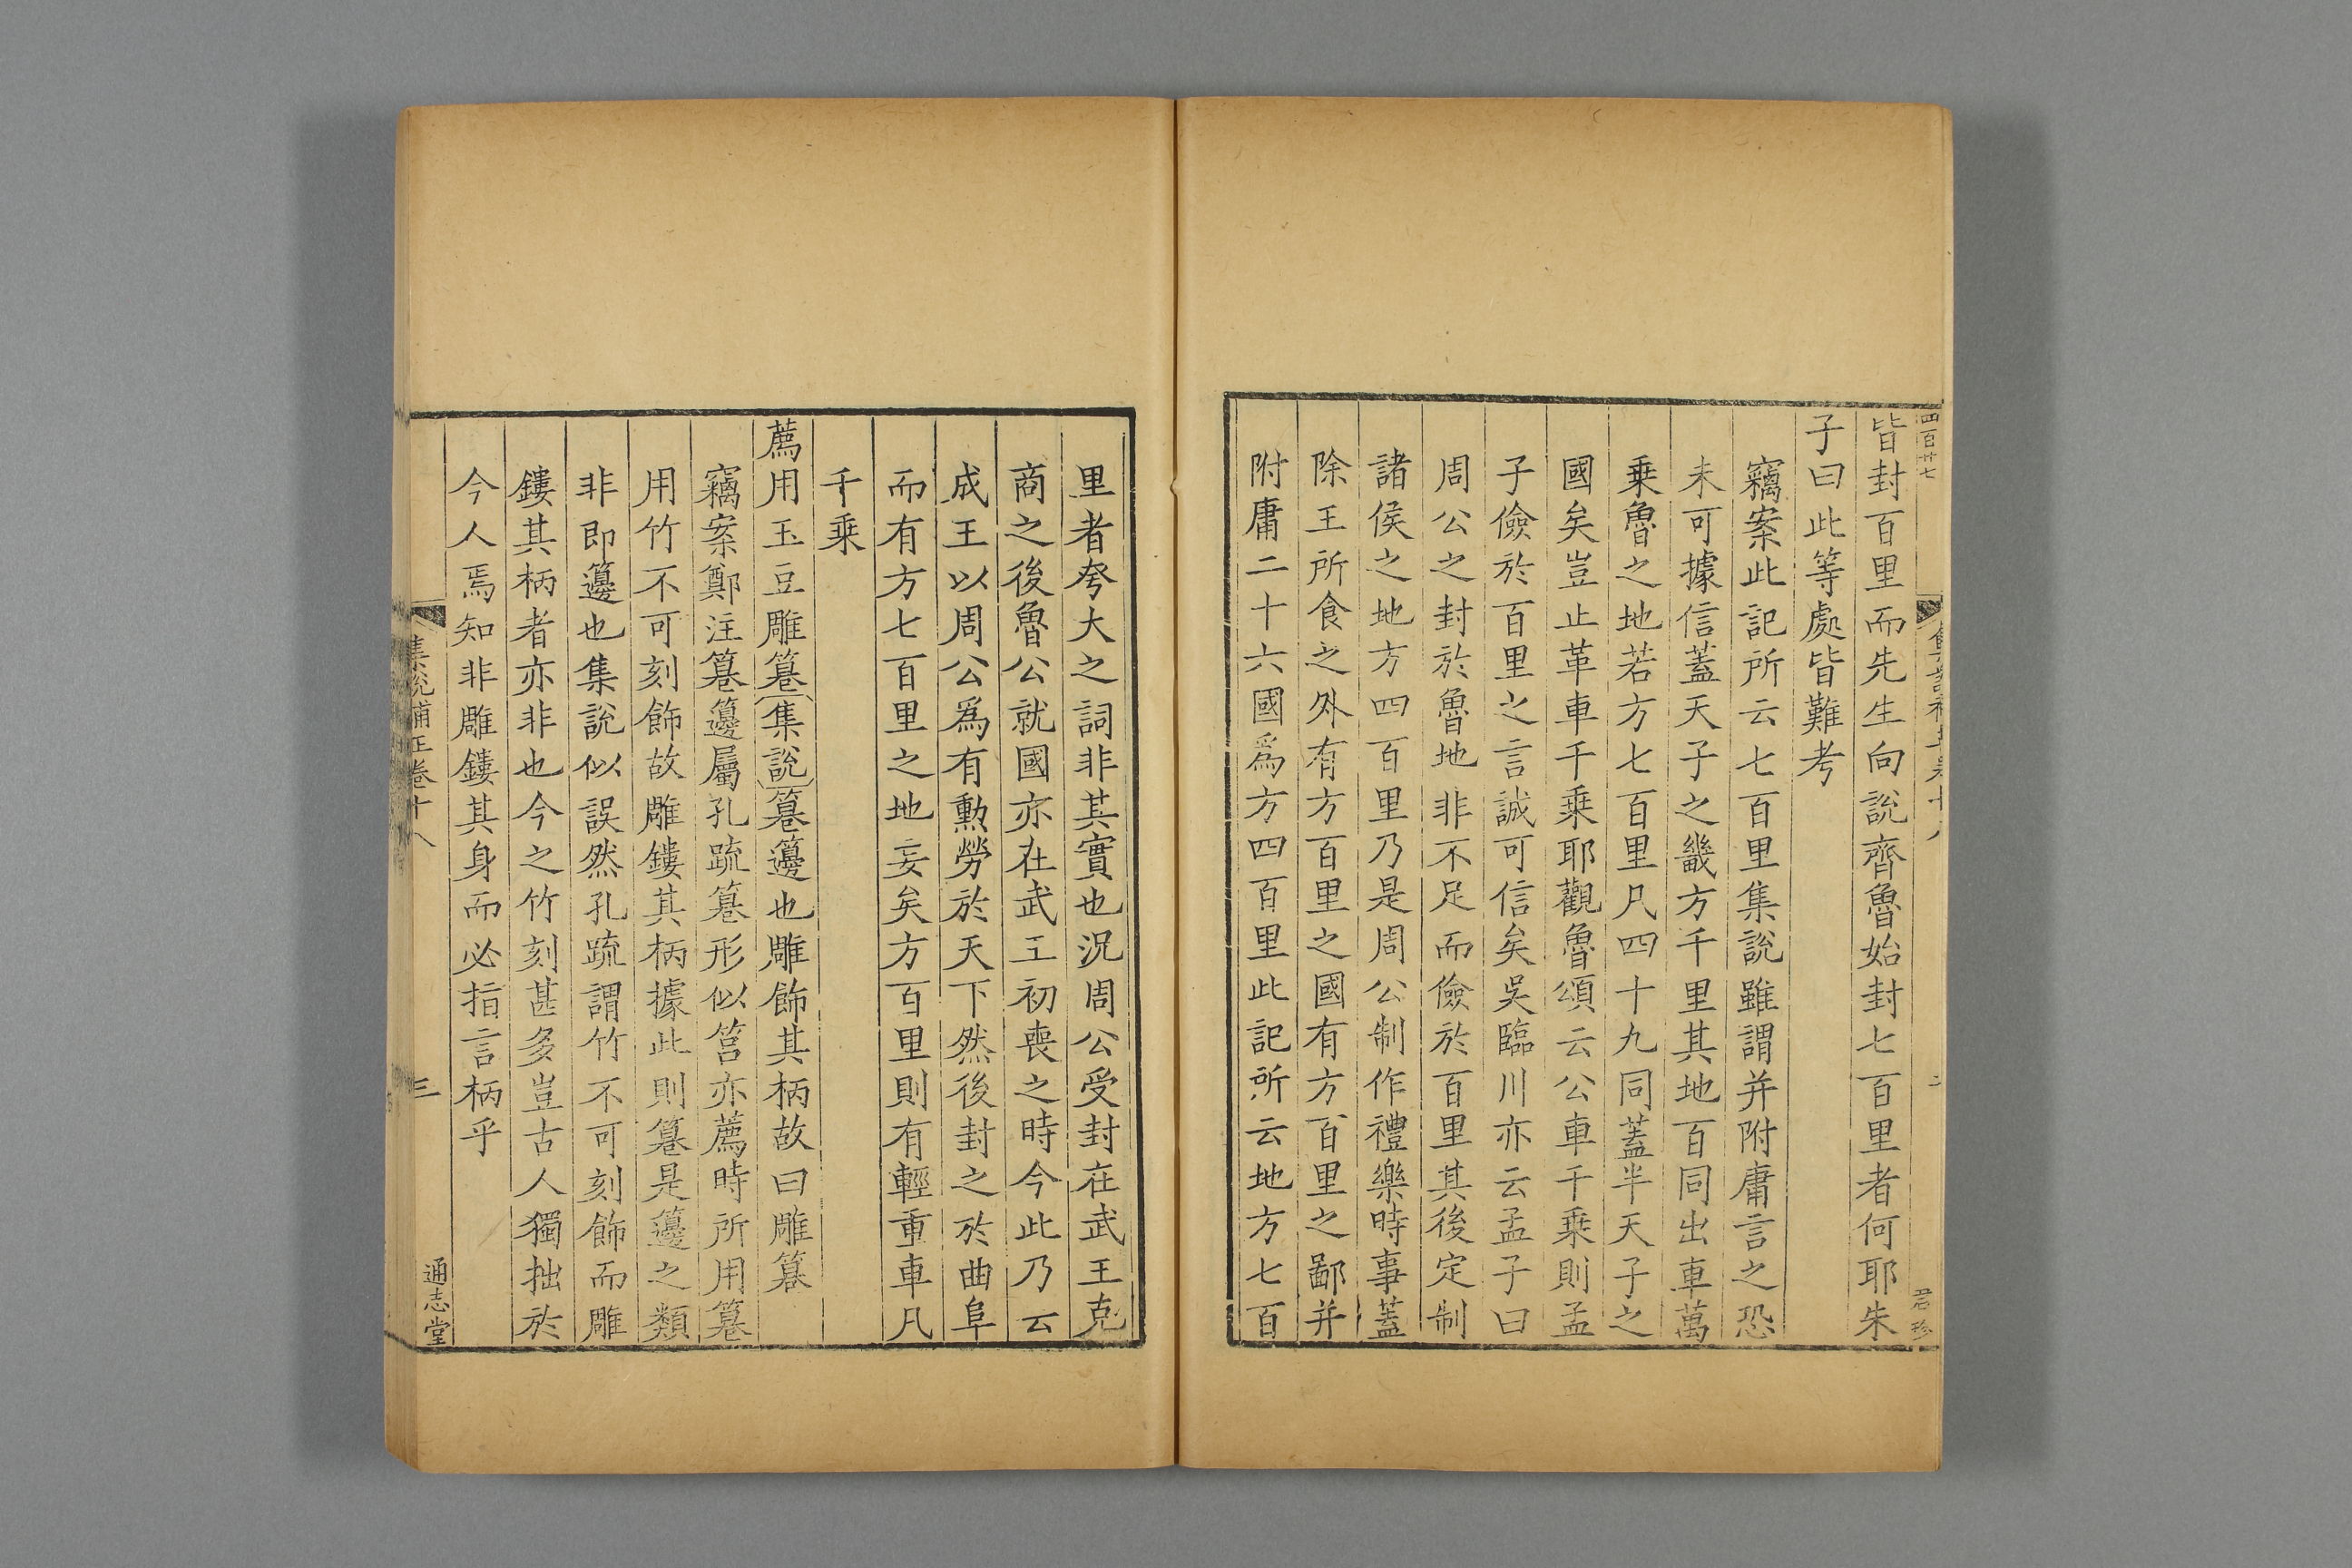 四百廿七
皆封百里而先生向說齊魯始封七百里者何耶朱
子曰此等處皆難考
竊案此記所云七百里集說雖謂并附庸言之恐
未可據信蓋天子之畿方千里其地百同出車萬
乘魯之地若方七百里凡四十九同蓋半天子之
國矣豈止革車千乘耶觀魯頌云公車千乘則孟
子儉於百里之言誠可信矣吳臨川亦云孟子曰
周公之封於魯地非不足而儉於百里其後定制
諸侯之地方四百里乃是周公制作禮樂時事蓋
除王所食之外有方百里之國有方百里之鄙并
附庸二十六國爲方四百里此記所云地方七百
里者夸大之詞非其實也況周公受封在武王克
商之後魯公就國亦在武王初喪之時今此乃云
成王以周公爲有勳勞於天下然後封之於曲阜
而有方七百里之地妄矣方百里則有輕重車凡
千乘
薦用玉豆雕篹集說篹籩也雕飾其柄故曰雕篹
竊案鄭注篹籩屬孔疏篹形似筥亦薦時所用篹
用竹不可刻飾故雕鏤其柄據此則篹是籩之類
非即籩也集說似誤然孔疏謂竹不可刻飾而雕
鏤其柄者亦非也今之竹刻甚多豈古人獨拙於
今人焉知非雕鏤其身而必指言柄乎
集說補正卷十八
三
通志堂